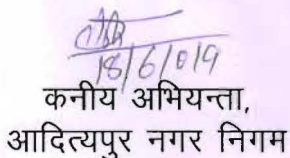 18/6/019
कनीय अभियन्ता,
आदित्यपुर नगर निगम